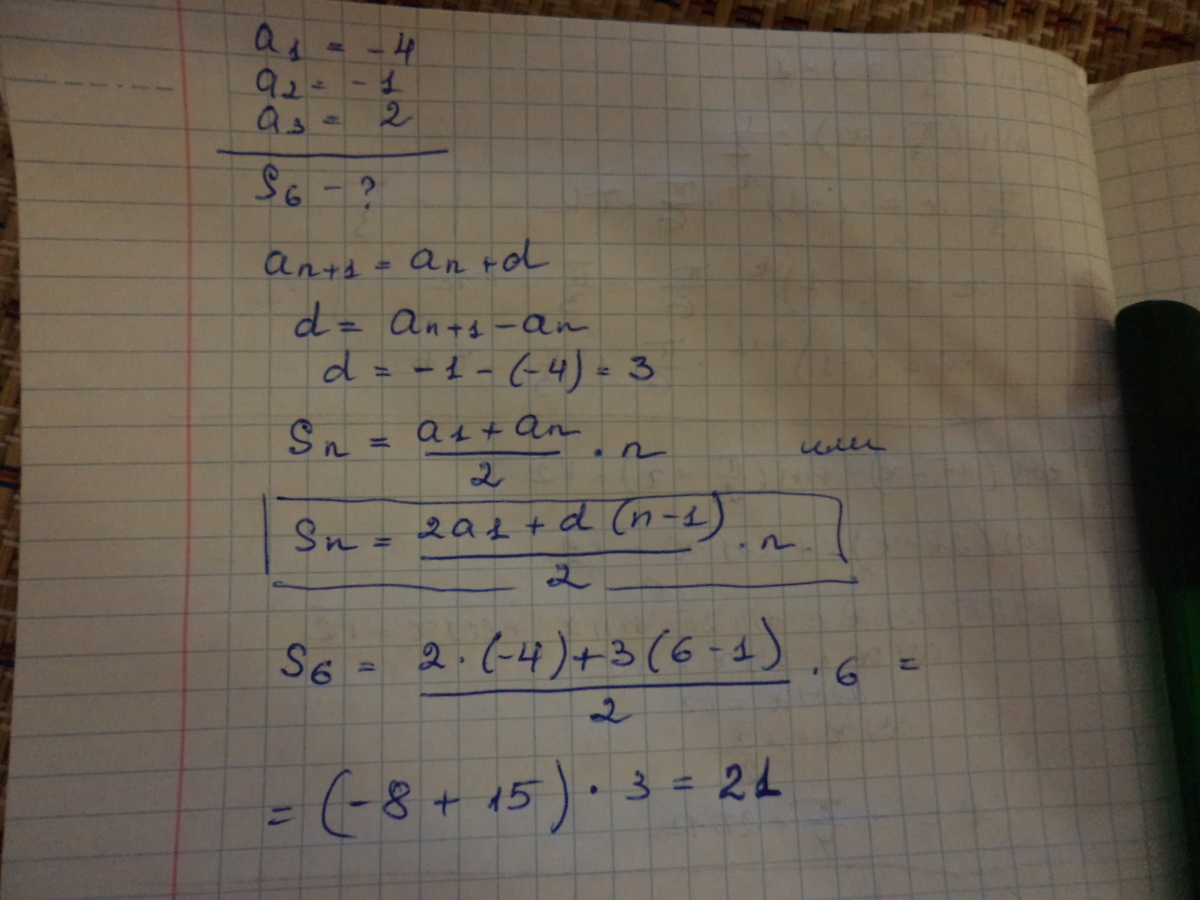 a₁ = -4
a₂ = -1
a₃ = 2
S₆ - ?
aₙ₊₁ = aₙ + d
d = aₙ₊₁ - aₙ
d = -1 - (-4) = 3
Sₙ = (a₁ + aₙ)/2 · n или
Sₙ = (2a₁ + d(n-1))/2 · n
S₆ = (2·(-4)+3(6-1))/2 · 6 =
= (-8 + 15) · 3 = 21